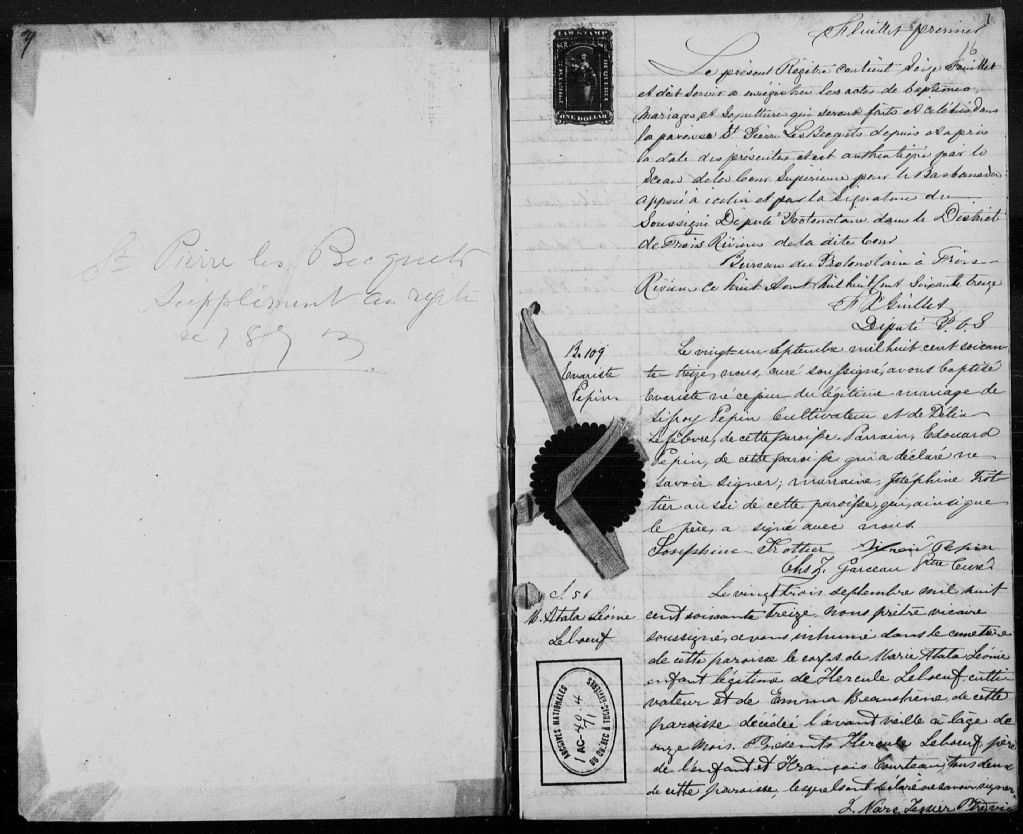 St Pierre les Becquets
Supplément au registre
de 1873
1
Feuillet premier
16
LAW STAMP
PROVINCE
DE QUEBEC
ONE DOLLAR
Le présent Registre contient Seize Feuillet
et doit servir a enregistrer les actes de baptêmes,
mariages, et sépulture qui seront faits et célébrés dans
la paroisse St Pierre Les Becquets depuis et après
la date des présentes et est authentiqué par le
Sceau de la Cour Supérieure pour le Bas Canada
apposé à icelui et par la Signature du
Soussigné Député Protonotaire dans le District
de Trois Rivières de la dite Cour
Bureau du Protonotaire à Trois
Rivières Ce huit Aout Mil huit Cent Soixante treize
Député P.C.S
B. 109
Evariste
Pepin
Le vingt un Septembre mil huit cent soixan
te treize, nous, curé soussigné, avons baptisé
Evariste né ce jour du légitime mariage de
Sifroy Pepin Cultivateur et de Délia
Lefebvre, de cette paroisse. Parrain, Edouard
Pepin, de cette paroisse qui a déclaré ne
savoir signer; marraine, Joséphine Trot
tier aussi de cette paroisse, qui, ainsi que
le père, a signé avec nous.
Josephine Trottier Pepin
Chs Z. Garceau Ptre Curé
S. 56
M. Atala Léonie
Leboeuf
Le vingt trois septembre mil huit
cent soixante treize, nous prêtre vicaire
soussigné, avons inhumé dans le cimetière
de cette paroisse le corps de Marie Atala Léonie
enfant légitime de Hercule Leboeuf, culti
vateur et de Emma Beauchêne, de cette
paroisse décédée l'avant veille à l'âge de
onze mois. Présents Hercule Leboeuf, père
de l'enfant et François Courteau, tous deux
de cette paroisse, lesquels ont déclaré ne savoir signer.
ARCHIVES NATIONALES
1 AC-40-4
/11
DU QUÉBEC À TROIS-RIVIÈRES